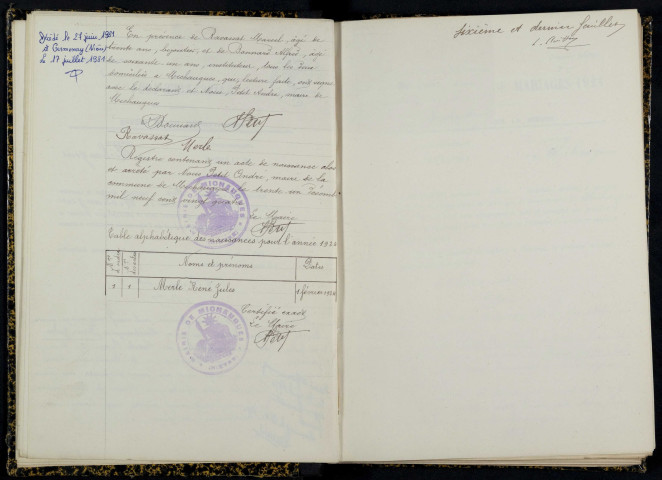 Décédé le 27 juin 1981
à
le 17 juillet 1981
En présence de Ravasset Marcel, âgé de
trente ans, et de Bonnard Alfred, âgé
de quarante un ans, instituteur, tous les deux
domiciliés à Mechougues, qui, lecture faite, ont signé
avec le déclarant et Nous, Petit André, maire de
Bonnard
Petit
Ravasset
Merle
Registre contenant un acte de naissance clos
et arrêté par Nous Petit André, maire de la
commune de le trente un Décembre
mil neuf cent vingt quatre
Le Maire
Petit
Table alphabétique des naissances pour l'année 1924
Noms et prénoms
Dates
1 1 Merle René Jules 1 février 1924
Certifié exact
Le Maire
Petit
MAIRIE DE
MAIRIE DE
sixième et dernier feuillet